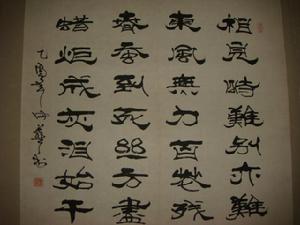 相見時難別亦難
東風無力百花残
春蚕到死絲方盡
蜡炬成灰泪始干
乙酉年